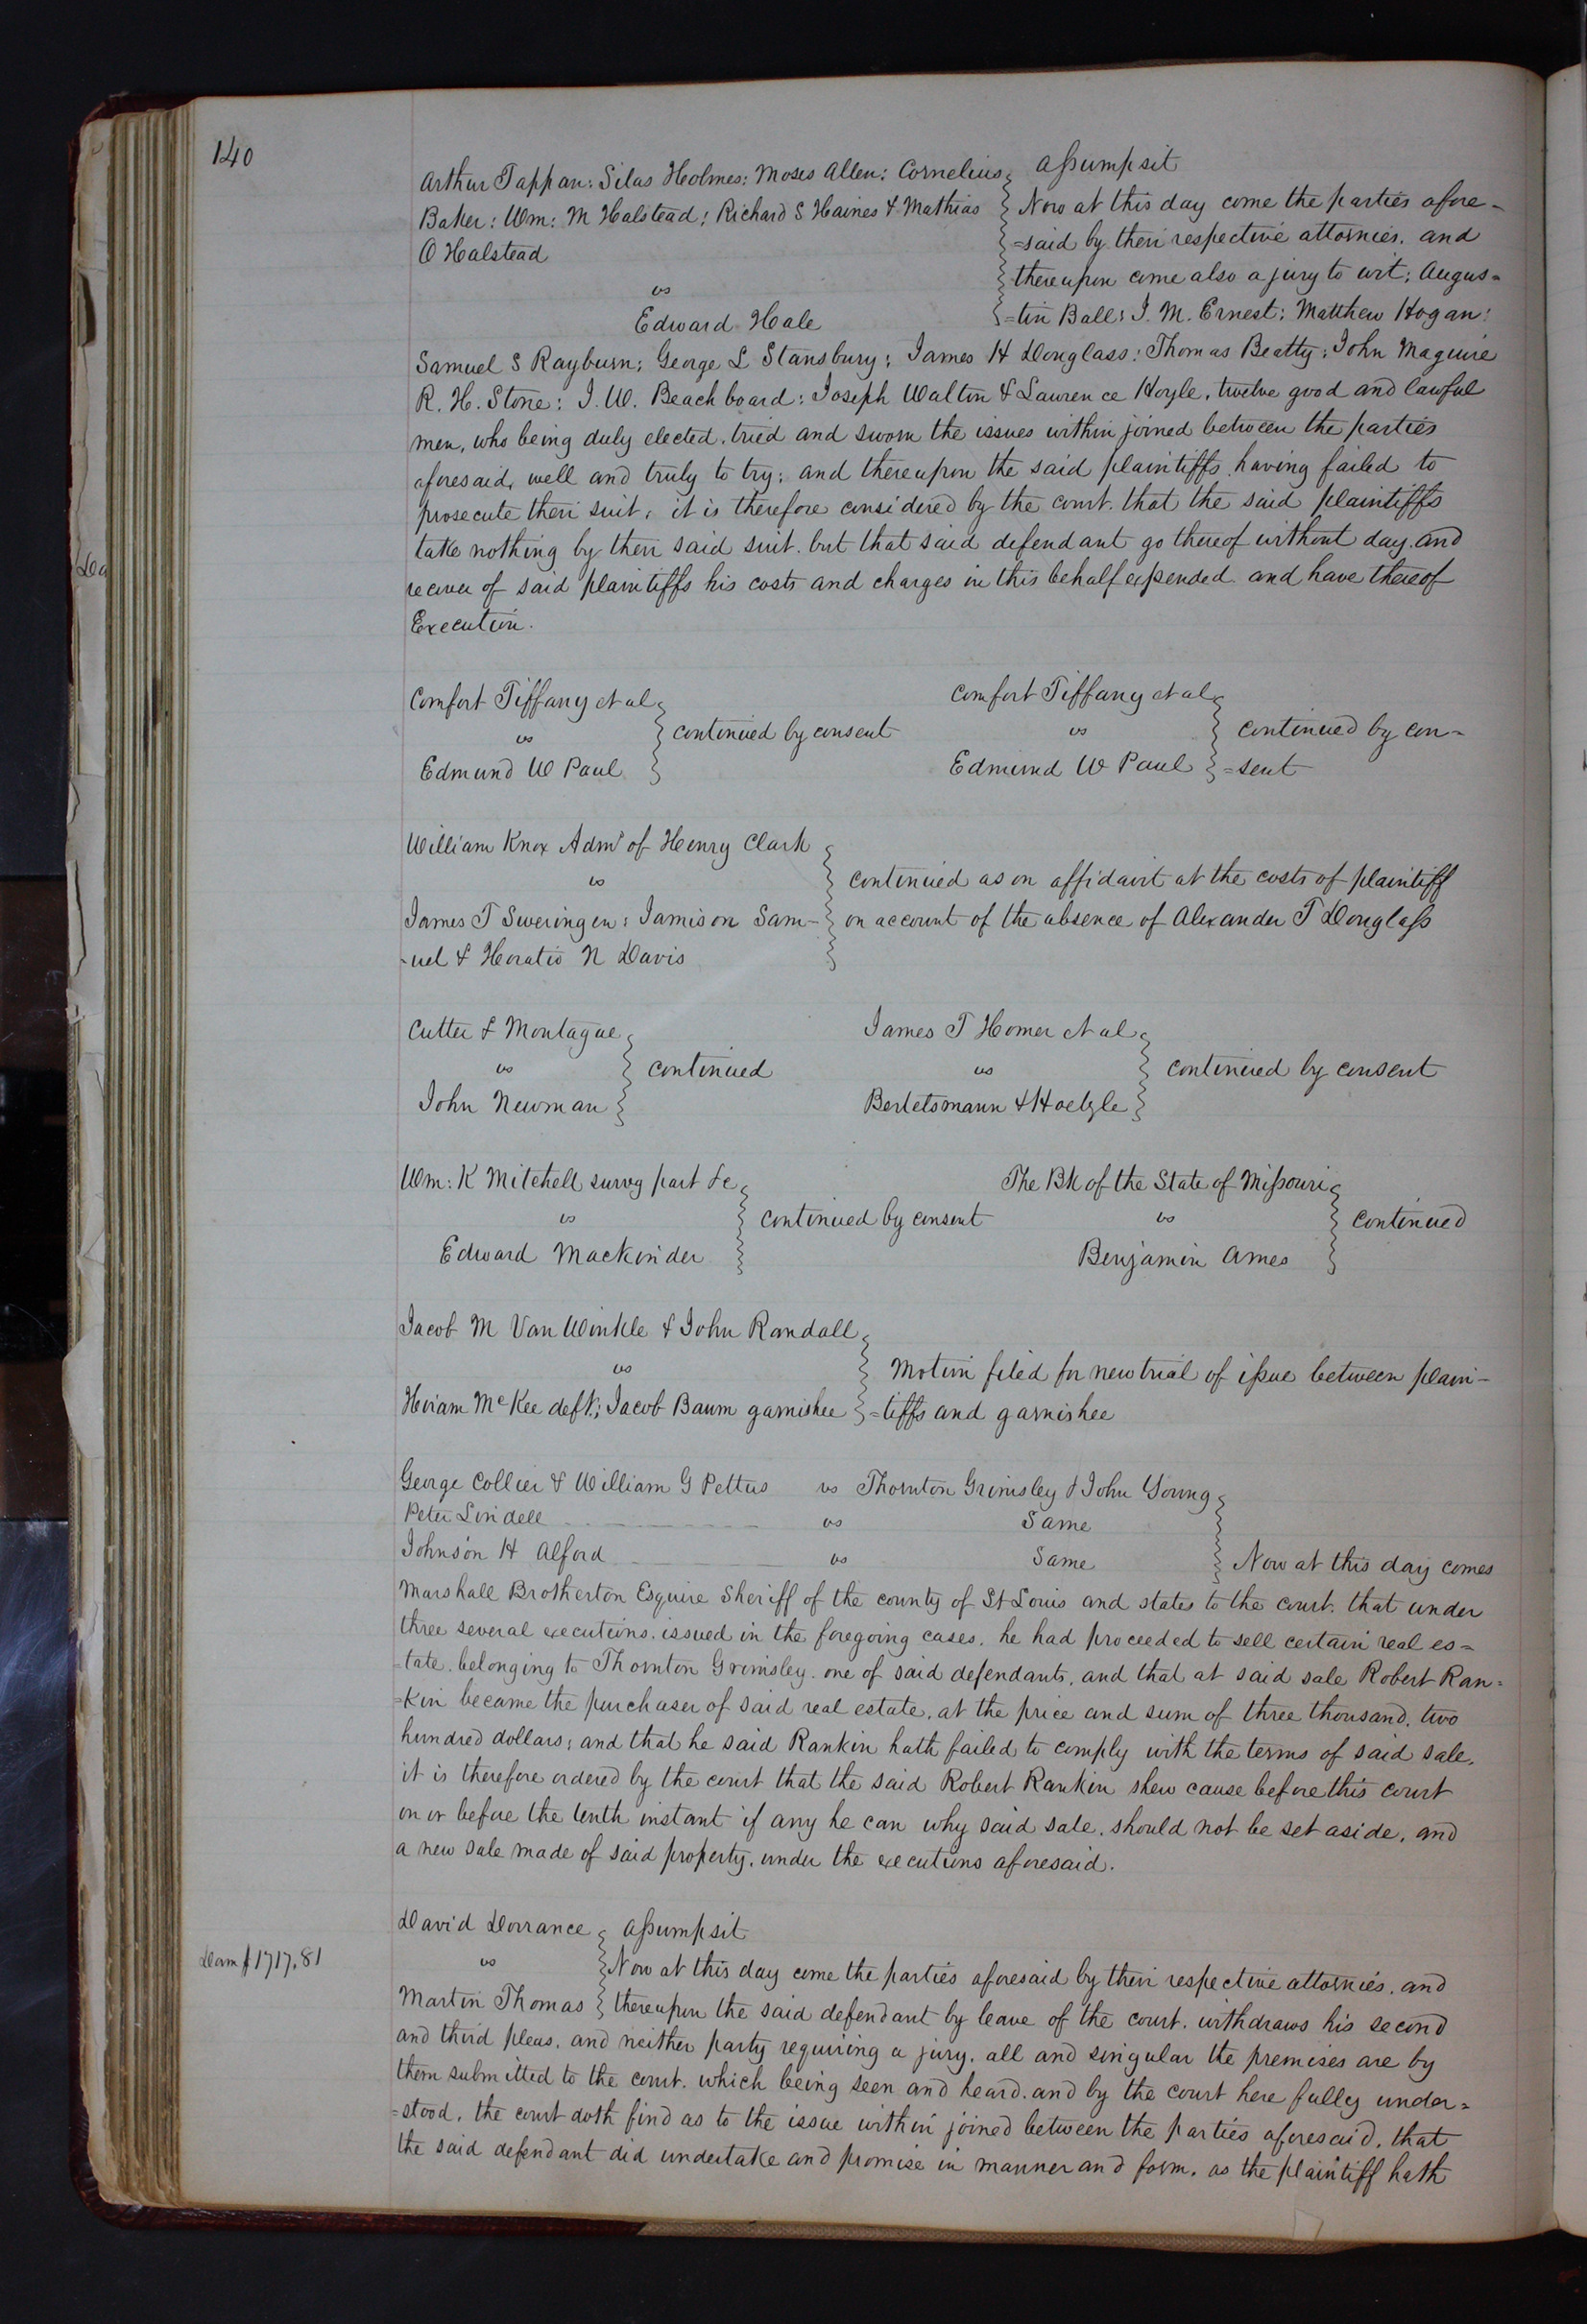 140
Arthur Tappan: Silas Holmes: Moses Allen: Cornelius
Baker: Wm: M Halstead: Richard S Haines & Mathias
O Halstead
vs
Edward Hale
Assumpsit
Now at this day come the parties afore-
=said by their respective attornies. and
thereupon come also a jury to wit: Augus=
=tin Ball: J. M. Ernest: Matthew Hogan:
Samuel S Rayburn: George L Stansbury: James H Douglass: Thomas Beatty: John Maguire
R. H. Stone: J. W. Beachboard: Joseph Walton & Lawrence Hoyle, twelve good and lawful
men, who being duly elected. tried and sworn the issues within joined between the parties
aforesaid, well and truly to try: and thereupon the said plaintiffs having failed to
prosecute their suit: it is therefore considered by the court. that the said plaintiffs
take nothing by their said suit. but that said defendant go thereof without day. and
recover of said plaintiffs his costs and charges in this behalf expended. and have thereof
Execution.
Comfort Tiffany et al
vs
Edmund W Paul
continued by consent
Comfort Tiffany et al
vs
Edmund W Paul
continued by con-
=sent
William Knox Admr of Henry Clark
vs
James T Sweringen: Jamison Sam-
-uel & Horatio N Davis
continued as on affidavit at the costs of plaintiff
on account of the absence of Alexander T Douglass
Cutter & Montague
vs
John Newman
continued
James T Homer et al
vs
Bertetsmann & Hoelzle
continued by consent
Wm: K Mitchell survg part &c
vs
Edward Mackinder
continued by consent
The Bk of the State of Missouri
vs
Benjamin Ames
continued
Jacob M Van Winkle & John Randall
vs
Hiram McKee deft.; Jacob Baum garnishee
Motion filed for new trial of issue between plain-
=tiffs and garnishee
George Collier & William G Pettus vs Thornton Grimsley & John Young
Peter Lindell vs Same
Johnson H Alford vs Same Now at this day comes
Marshall Brotherton Esquire Sheriff of the county of St Louis and states to the court. that under
three several executions. issued in the foregoing cases. he had proceeded to sell certain real es=
=tate. belonging to Thornton Grimsley. one of said defendants, and that at said sale Robert Ran=
=kin became the purchaser of said real estate, at the price and sum of three thousand, two
hundred dollars; and that he said Rankin hath failed to comply with the terms of said sale,
it is therefore ordered by the court that the said Robert Rankin shew cause before this court
on or before the tenth instant if any he can why said sale. should not be set aside, and
a new sale made of said property, under the executions aforesaid.
Dam $1717.81
David Dorrance
vs
Martin Thomas
Assumpsit
Now at this day come the parties aforesaid by their respective attornies. and
thereupon the said defendant by leave of the court. withdraws his second
and third pleas. and neither party requiring a jury. all and singular the premises are by
them submitted to the court. which being seen and heard. and by the court here fully under=
=stood, the court doth find as to the issue within joined between the parties aforesaid, that
the said defendant did undertake and promise in manner and form. as the plaintiff hath